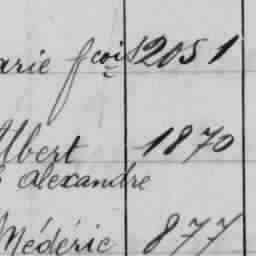 arie fcois 2051
Albert 1870
Alexandre
Médéric 877